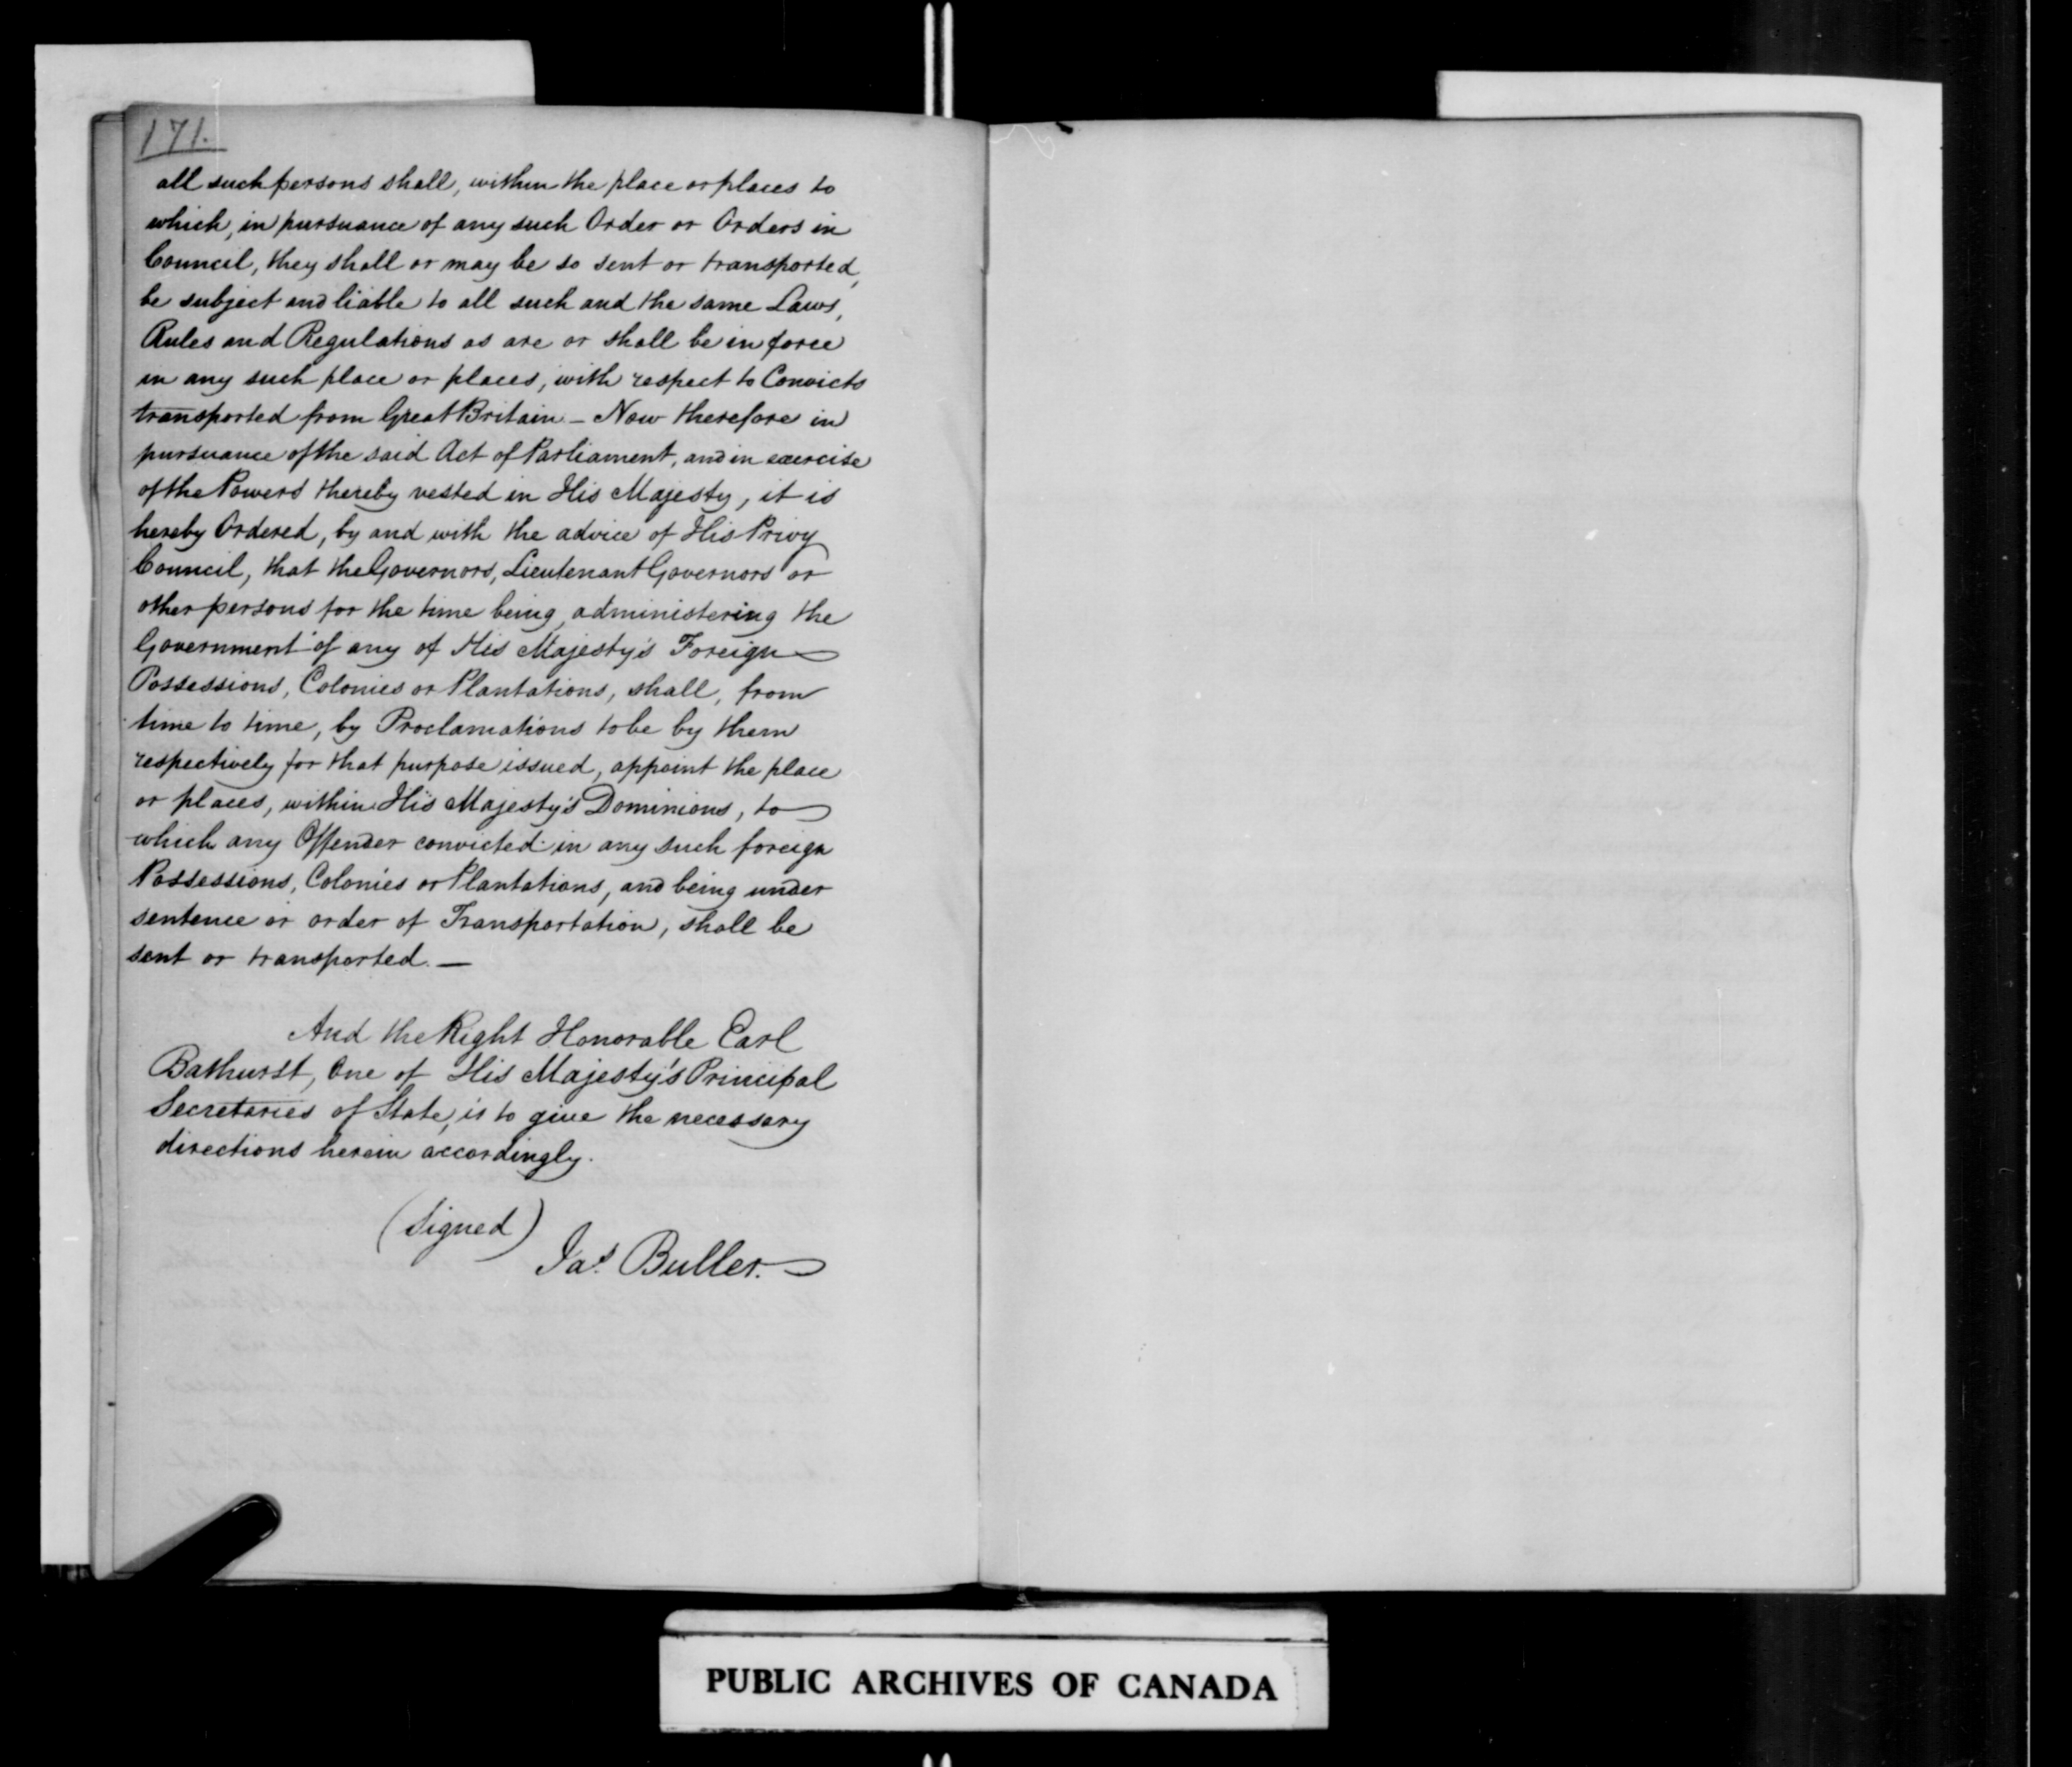 171.
all such persons shall, within the place or places to
which, in pursuance of any such Order or Orders in
Council, they shall or may be so sent or transported,
be subject and liable to all such and the same Laws,
Rules and Regulations as are or shall be in force
in any such place or places, with respect to Convicts
transported from Great Britain – Now therefore in
pursuance of the said Act of Parliament, and in exercise
of the Powers thereby vested in His Majesty, it is
hereby Ordered, by and with the advice of His Privy
Council, that the Governors, Lieutenant Governors or
other persons for the time being, administering the
Government of any of His Majesty's Foreign
Possessions, Colonies or Plantations, shall, from
time to time, by Proclamations to be by them
respectively for that purpose issued, appoint the place
or places, within His Majesty's Dominions, to
which any Offender convicted in any such foreign
Possessions, Colonies or Plantations, and being under
sentence or order of Transportation, shall be
sent or transported. —
And the Right Honorable Earl
Bathurst, One of His Majesty's Principal
Secretaries of State, is to give the necessary
directions herein accordingly.
(Signed)
Jas. Buller.
PUBLIC ARCHIVES OF CANADA